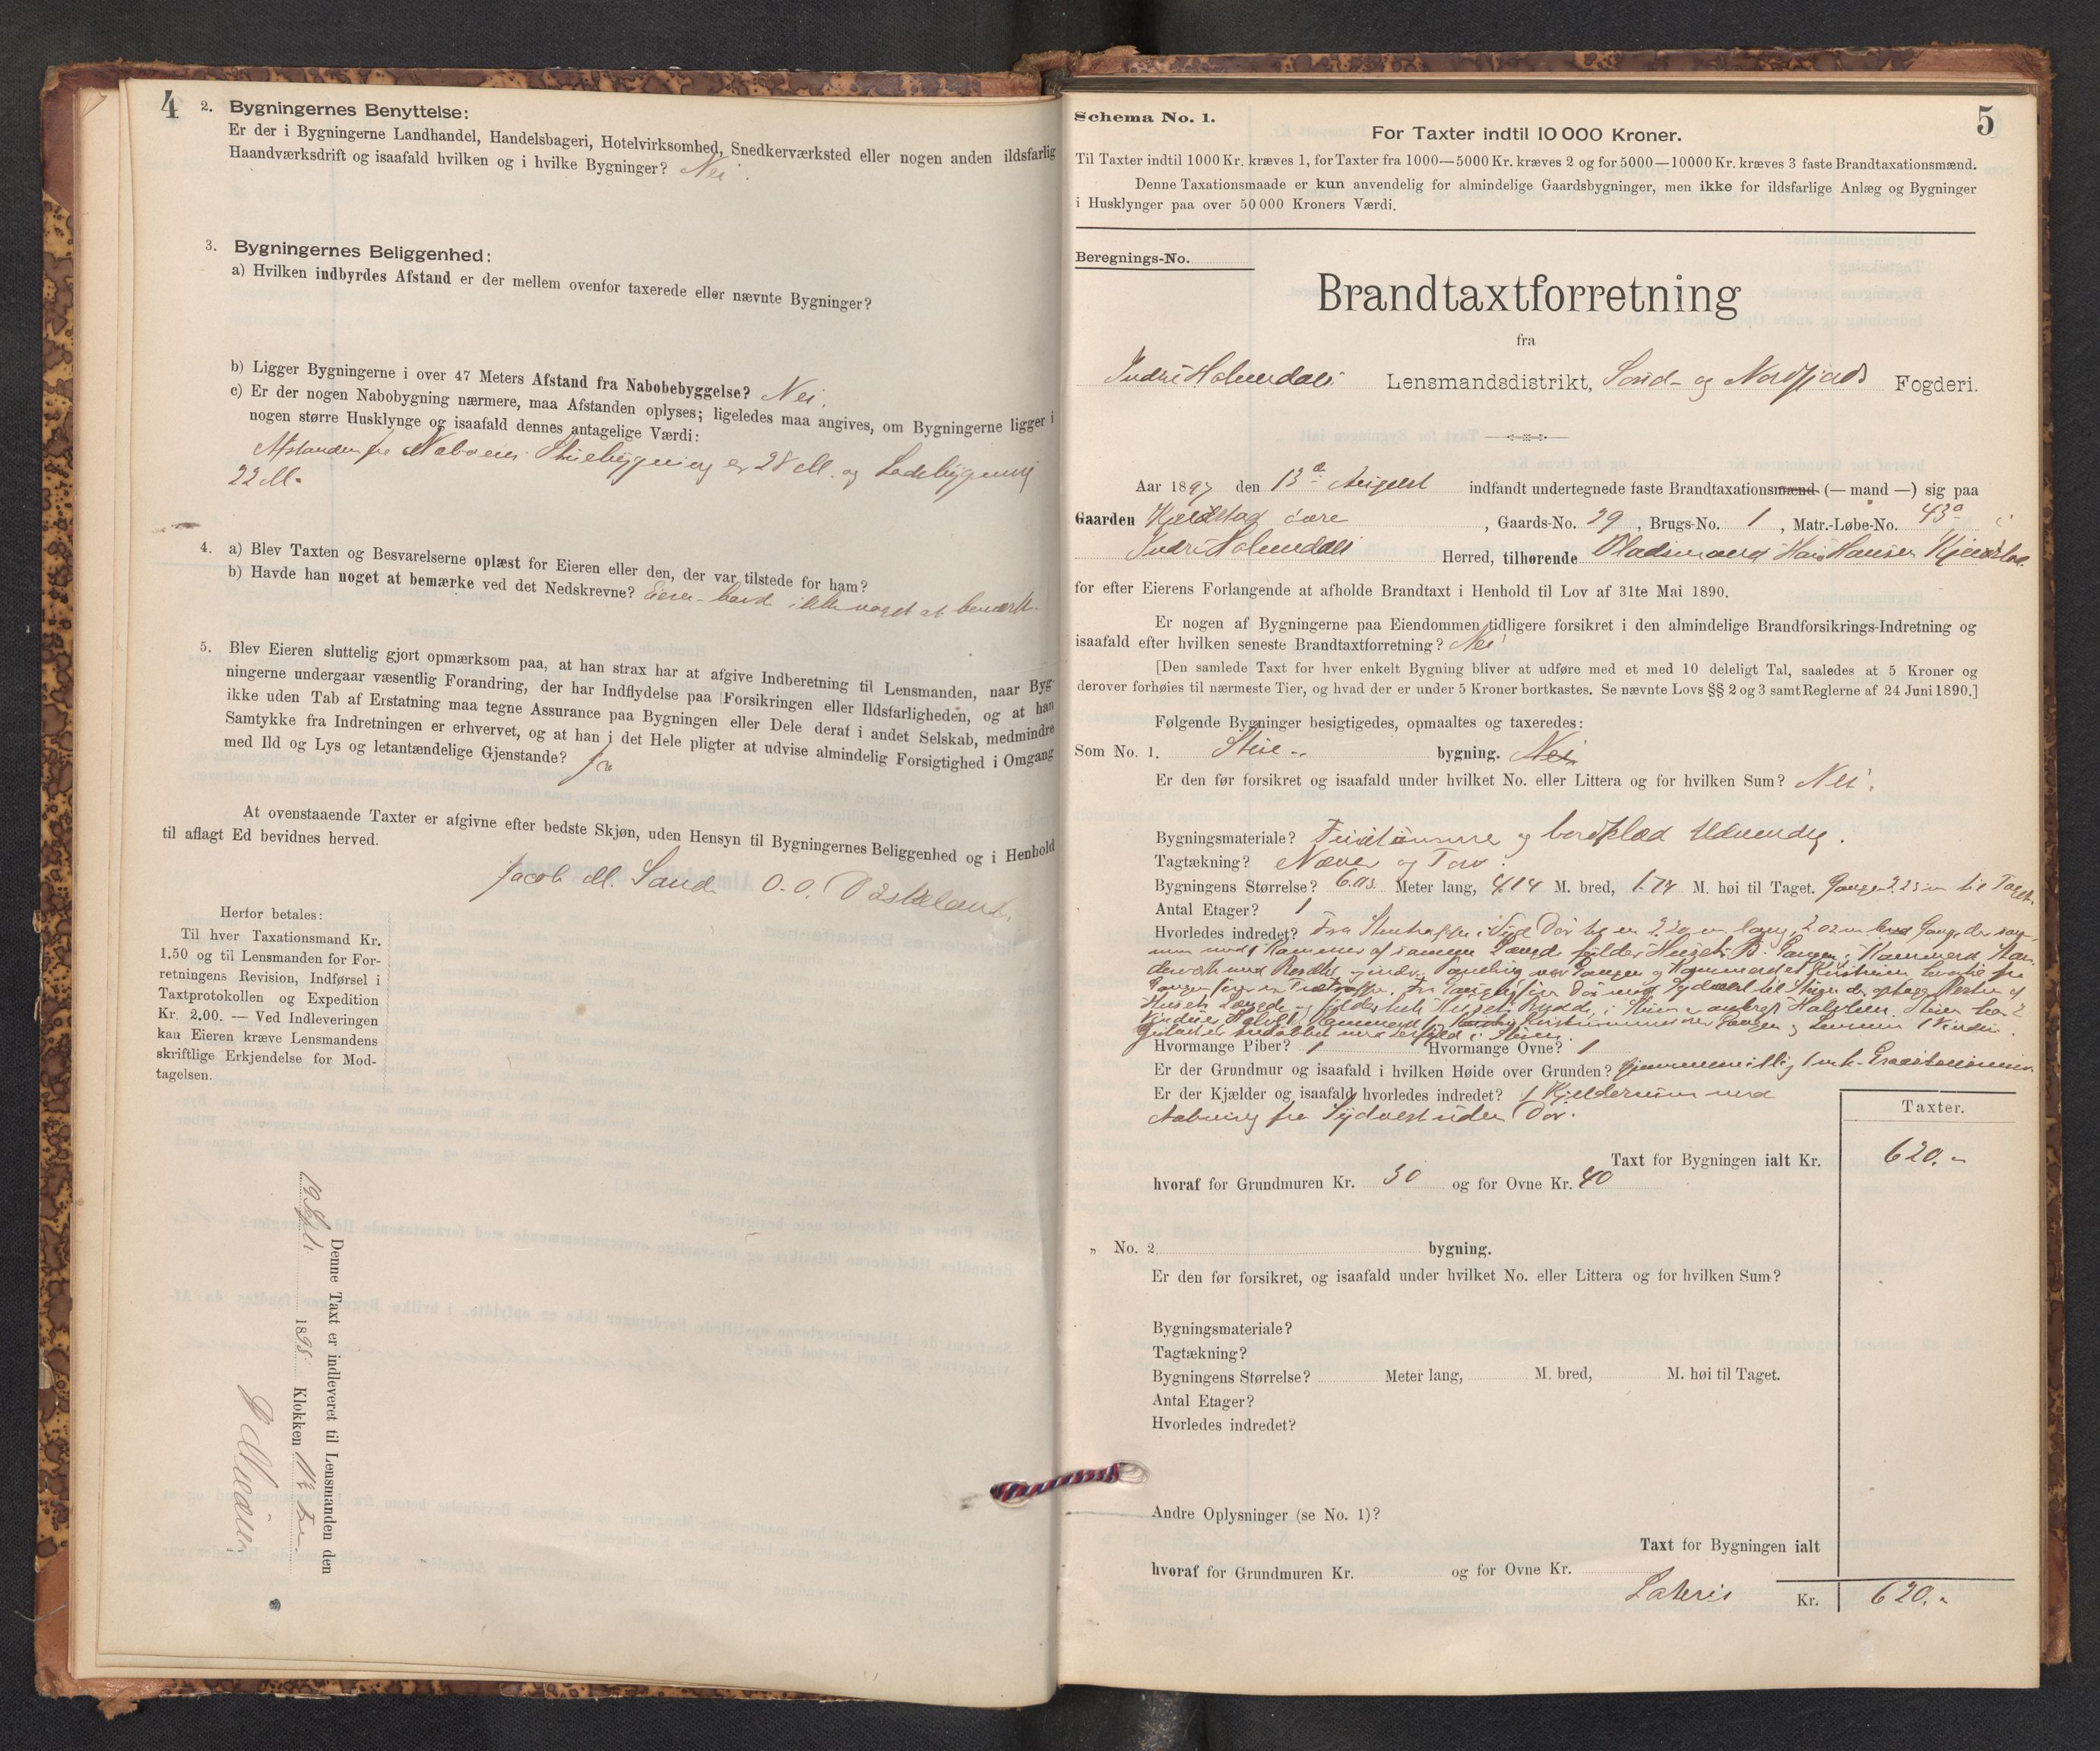 4
2. Bygningernes Benyttelse:
Er der i Bygningerne Landhandel, Handelsbageri, Hotelvirksomhed, Snedkerværksted eller nogen anden ildsfarlig
Haandværksdrift og isaafald hvilken og i hvilke Bygninger? Nei.
3. Bygningernes Beliggenhed:
a) Hvilken indbyrdes Afstand er der mellem ovenfor taxerede eller nævnte Bygninger?
b) Ligger Bygningerne i over 47 Meters Afstand fra Nabobebyggelse? Nei.
c) Er der nogen Nabobygning nærmere, maa Afstanden oplyses; ligeledes maa angives, om Bygningerne ligger i
nogen større Husklynge og isaafald dennes antagelige Værdi:
Afstanden fra Naboens Stuebygning er 28 M. og Ladebygning
22 M.
4. a) Blev Taxten og Besvarelserne oplæst for Eieren eller den, der var tilstede for ham?
b) Havde han noget at bemærke ved det Nedskrevne? Eieren havd ikke noget at bemærke.
5. Blev Eieren sluttelig gjort opmærksom paa, at han strax har at afgive Indberetning til Lensmanden, naar Byg-
ningerne undergaar væsentlig Forandring, der har Indflydelse paa Forsikringen eller Ildsfarligheden, og at han
ikke uden Tab af Erstatning maa tegne Assurance paa Bygningen eller Dele deraf i andet Selskab, medmindre
Samtykke fra Indretningen er erhvervet, og at han i det Hele pligter at udvise almindelig Forsigtighed i Omgang
med Ild og Lys og letantændelige Gjenstande? Ja
At ovenstaaende Taxter er afgivne efter bedste Skjøn, uden Hensyn til Bygningernes Beliggenhed og i Henhold
til aflagt Ed bevidnes herved.
Jacob M. Sande O. O.
Herfor betales:
Til hver Taxationsmand Kr.
1.50 og til Lensmanden for For-
retningens Revision, Indførsel i
Taxtprotokollen og Expedition
Kr. 2.00. — Ved Indleveringen
kan Eieren kræve Lensmandens
skriftlige Erkjendelse for Mod-
tagelsen.
Denne Taxt er indleveret til Lensmanden den
19 Septr 1898 Klokken 11½
5
Schema No. 1.
For Taxter indtil 10 000 Kroner.
Til Taxter indtil 1000 Kr. kræves 1, for Taxter fra 1000—5000 Kr. kræves 2 og for 5000—10000 Kr. kræves 3 faste Brandtaxationsmænd.
Denne Taxationsmaade er kun anvendelig for almindelige Gaardsbygninger, men ikke for ildsfarlige Anlæg og Bygninger
i Husklynger paa over 50 000 Kroners Værdi.
Beregnings-No.
Brandtaxtforretning
fra
Indre Holmedals Lensmandsdistrikt, Sønd- og Nordfjords Fogderi.
Aar 1897 den 13de August indfandt undertegnede faste Brandtaxationsmænd (— mand —) sig paa
Gaarden Kjelstad øvre, Gaards-No. 29, Brugs-No. 1, Matr.-Løbe-No. 43a i
Indre Holmedals Herred, tilhørende Pladsmand Hans Hansen Kjelstad
for efter Eierens Forlangende at afholde Brandtaxt i Henhold til Lov af 31te Mai 1890.
Er nogen af Bygningerne paa Eiendommen tidligere forsikret i den almindelige Brandforsikrings-Indretning og
isaafald efter hvilken seneste Brandtaxtforretning? Nei
[Den samlede Taxt for hver enkelt Bygning bliver at udføre med et med 10 deleligt Tal, saaledes at 5 Kroner og
derover forhøies til nærmeste Tier, og hvad der er under 5 Kroner bortkastes. Se nævnte Lovs §§ 2 og 3 samt Reglerne af 24 Juni 1890.]
Følgende Bygninger besigtigedes, opmaaltes og taxeredes:
Som No. 1. Stue- bygning. Nei
Er den før forsikret og isaafald under hvilket No. eller Littera og for hvilken Sum? Nei.
Bygningsmateriale? og bordklæd Udvendig.
Tagtækning? Næver og Torv.
Bygningens Størrelse? 6.03 Meter lang, 4.14 M. bred, 1.74 M. høi til Taget. Gangen 2.25 m til Taget.
Antal Etager? 1
Hvorledes indredet? Fra Stentrappe i Syd Dør til en 2.20 m lang, 2.02 m bred Gang der
Hvormange Piber? 1 Hvormange Ovne? 1
Er der Grundmur og isaafald i hvilken Høide over Grunden? Gjennemsnitlig 1 m h. Graastensmur
Er der Kjælder og isaafald hvorledes indredet? 1 Kjelderrum med
Aabning fra Sydvest uden Dør.
Taxter.
Taxt for Bygningen ialt Kr. 620.-
hvoraf for Grundmuren Kr. 30 og for Ovne Kr. 40
„ No. 2 bygning.
Er den før forsikret, og isaafald under hvilket No. eller Littera og for hvilken Sum?
Bygningsmateriale?
Tagtækning?
Bygningens Størrelse? Meter lang, M. bred, M. høi til Taget.
Antal Etager?
Hvorledes indredet?
Andre Oplysninger (se No. 1)?
Taxt for Bygningen ialt
hvoraf for Grundmuren Kr. og for Ovne Kr.
Lateris Kr. 620.-